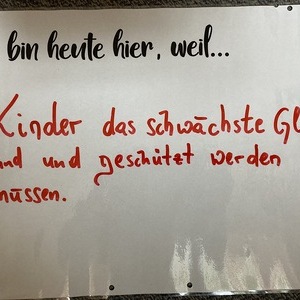 bin heute hier, weil...
Kinder das schwächste Gl
und und geschützt werden
müssen.